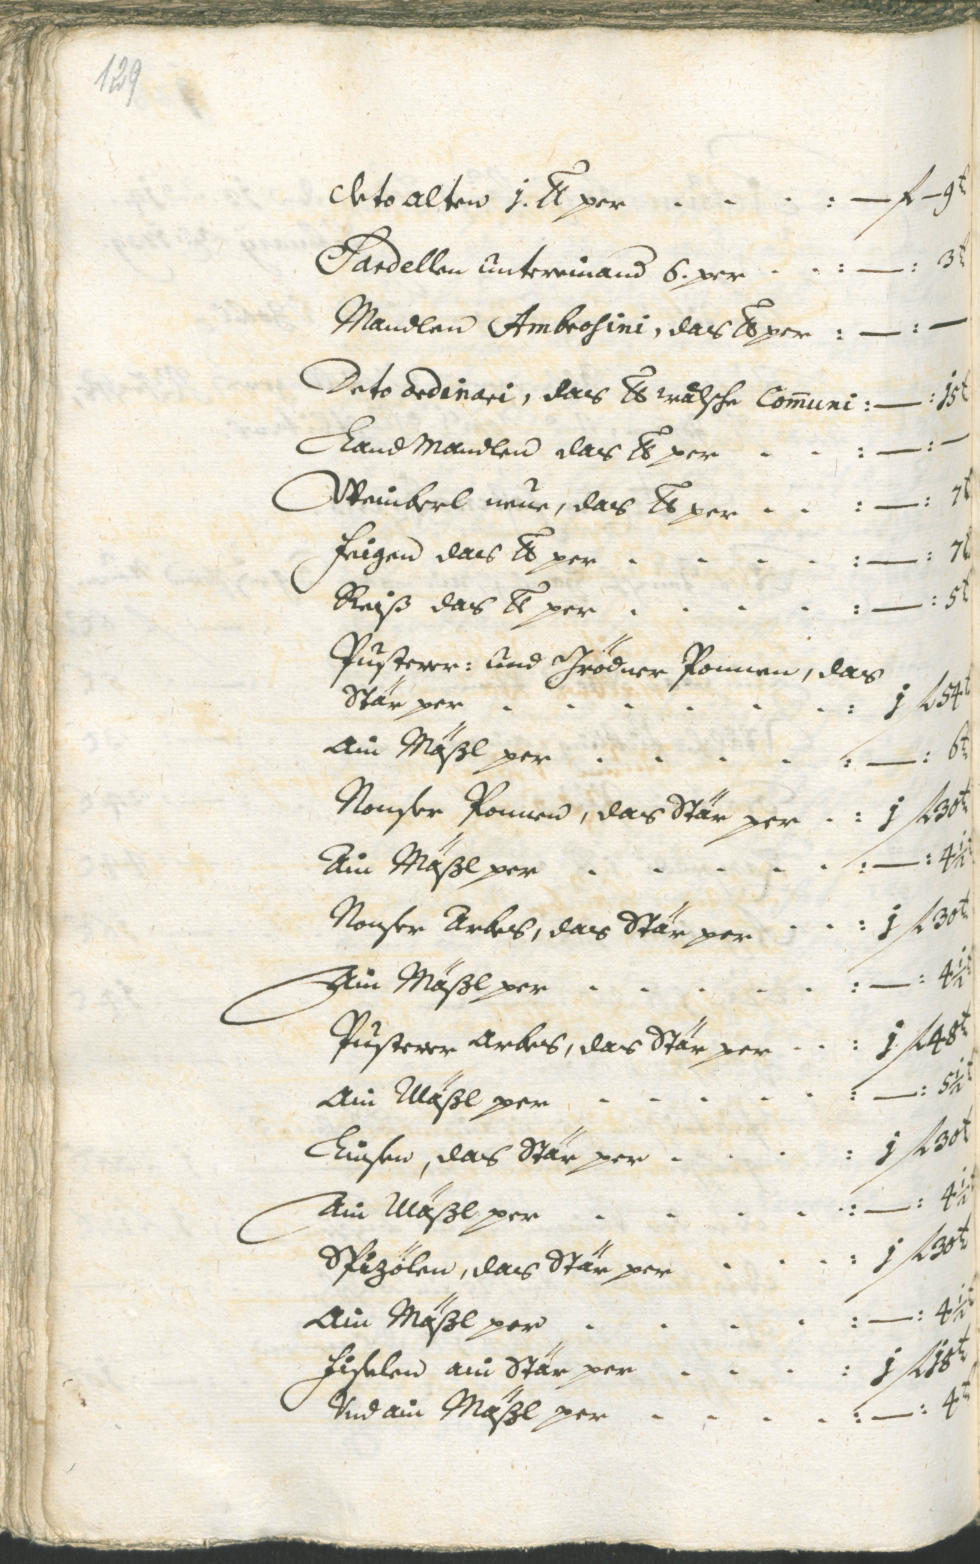 129
deto alten j. ℔ per . . . : — f — 9 k
Sardellen untereinand 6. per . . : — : 3 k
Mandlen Ambrosini, das ℔ per : — : —
Deto ordinari, das ℔ wälsche Com̄uni : — : 15 k
Land Mandlen das ℔ per . . : — : —
Weinberl neue, das ℔ per . . : — : 7 k
Feigen das ℔ per . . . . : — : 7 k
Reiß das ℔ per . . . . : — : 5 k
Pusterer: und Grödner Ponnen, das
Stär per . . . . . . : j f 54 k
Ain Mäßl per . . . . : — : 6 k
Nonser Ponnen, das Stär per . : j f 30 k
Ain Mäßl per . . . . . : — : 4½ k
Nonser Arbes, das Stär per . . : j f 30 k
Ain Mäßl per . . . . . : — : 4½ k
Pusterer Arbes, das Stär per . . : j f 48 k
Ain Mäßl per . . . . . : — : 5½ k
Linsen, das Stär per . . . : j f 30 k
Ain Mäßl per . . . . . : — : 4½ k
Spizölen, das Stär per . . . : j f 30 k
Ain Mäßl per . . . . : — : 4½ k
Fiselen ain Stär per . . . : j f 18 k
Und ain Mäßl per . . . . : — : 4 k